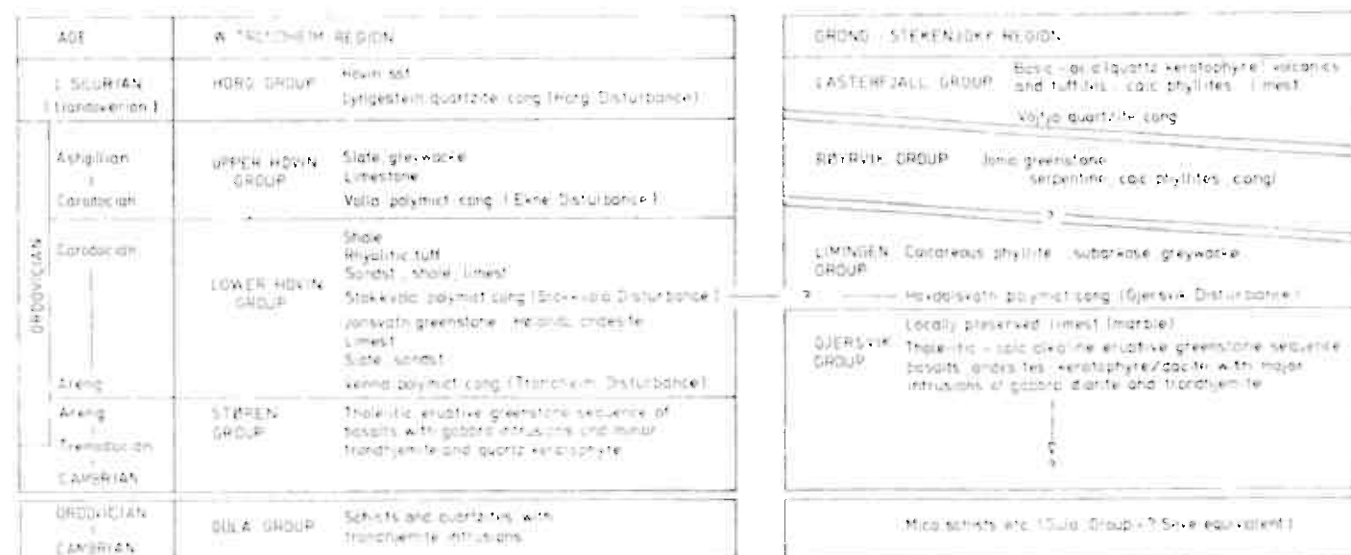 AGE
W TRONDHEIM REGION
L SILURIAN
(Llandoverian)
HORG GROUP
Hovin sst
Lyngestein quartzite cong (Horg Disturbance)
ORDOVICIAN
Ashgillian
Caradocian
UPPER HOVIN
GROUP
Slate, greywacke
Limestone
Volla polymict cong (Ekne Disturbance)
Caradocian
Areng
LOWER HOVIN
GROUP
Shale
Rhyolitic tuff
Sandst, shale, limest
Stokkvola polymict cong (Stokkvola Disturbance)
Jonsvatn greenstone andesite
Limest
Slate, sandst
Venna polymict cong (Trondheim Disturbance)
Areng
Tremadocian
CAMBRIAN
STØREN
GROUP
Tholeiitic eruptive greenstone sequence of
basalts with gabbro intrusions and minor
trondhjemite and quartz keratophyte
ORDOVICIAN
CAMBRIAN
GULA GROUP
Schists and quartzites with
trondhjemite intrusions
GRONG - STEKENJOKK REGION
LASTERFJALL GROUP
Basic - acid (quartz keratophyre) volcanics
and tuffites, calc phyllites, limest
Vojtja quartzite cong
RØYRVIK GROUP
Joma greenstone
serpentine, calc phyllites, cong
?
LIMINGEN
GROUP
Calcareous phyllite, subarkose, greywacke
?
Havdalsvatn polymict cong (Gjersvik Disturbance)
GJERSVIK
GROUP
Locally preserved limest (marble)
Tholeiitic - calc alkaline eruptive greenstone sequence
basalts, andesites, keratophyre/dacite with major
intrusions of gabbro, diorite and trondhjemite
?
Mica schists etc (Gula Group - ? Seve equivalent)